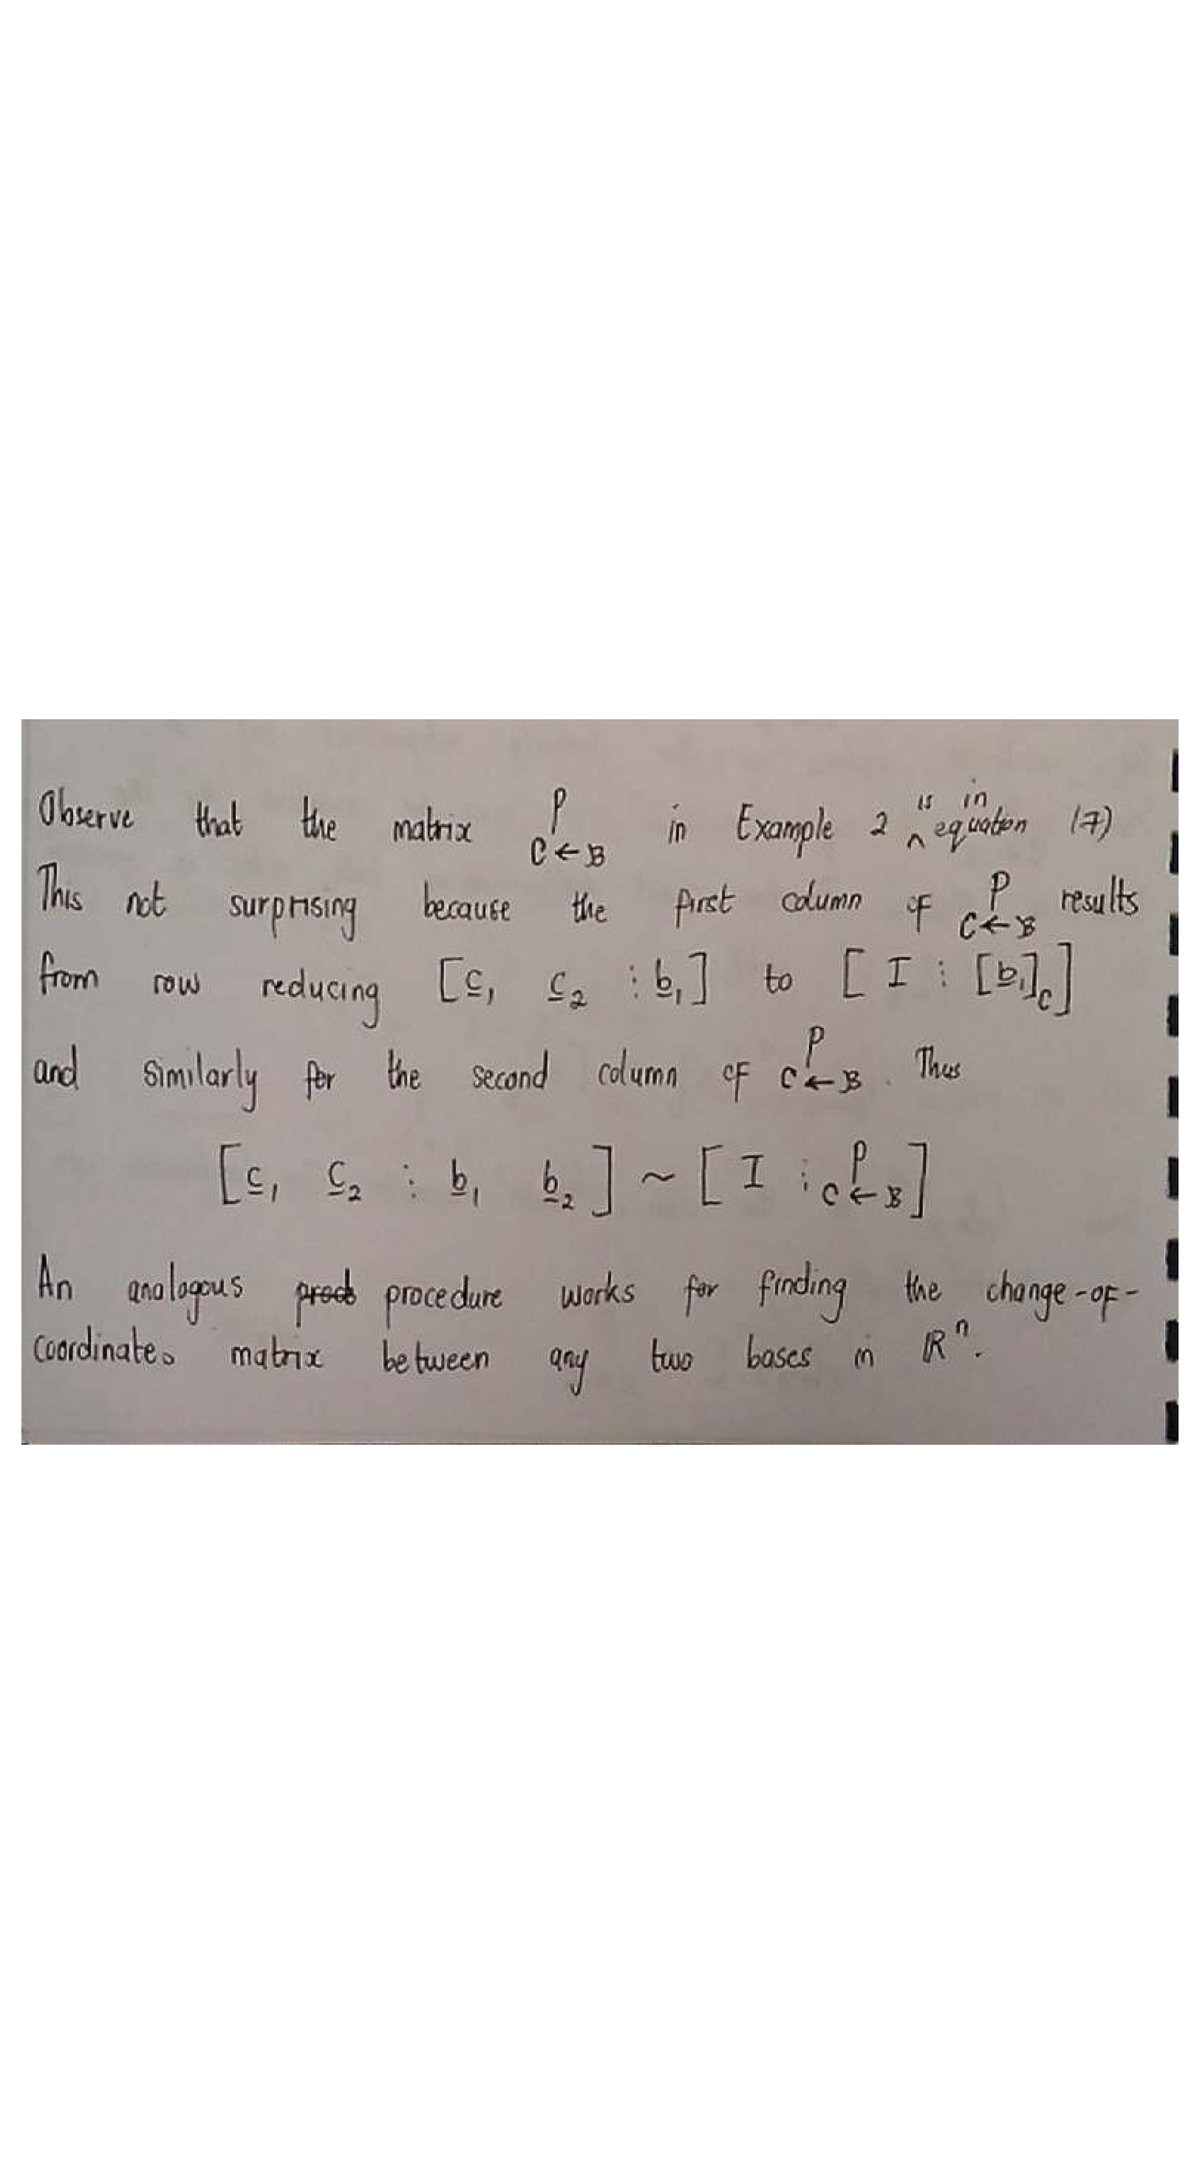 Observe that the matrix P C←B in Example 2 ^ is in equation (7)
This not surprising because the first column of P C←B results
from row reducing [c₁ c₂ ⋮ b₁] to [ I ⋮ [b₁]_C ]
and similarly for the second column of P C←B. Thus
[c₁ c₂ ⋮ b₁ b₂] ~ [ I ⋮ P C←B ]
An analogous procedure works for finding the change-of-
coordinates matrix between any two bases in ℝⁿ.